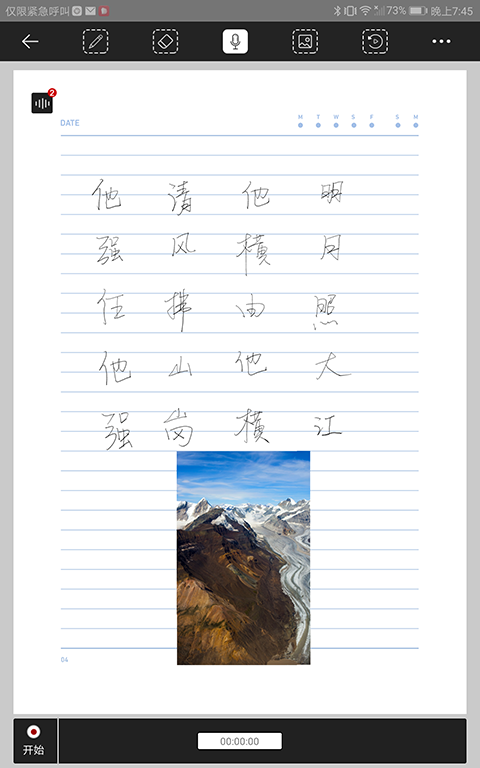 仅限紧急呼叫 73% 晚上7:45
2
DATE
M T W S F S M
他强任他强
清风拂山岗
他横由他横
明月照大江
04
开始
00:00:00